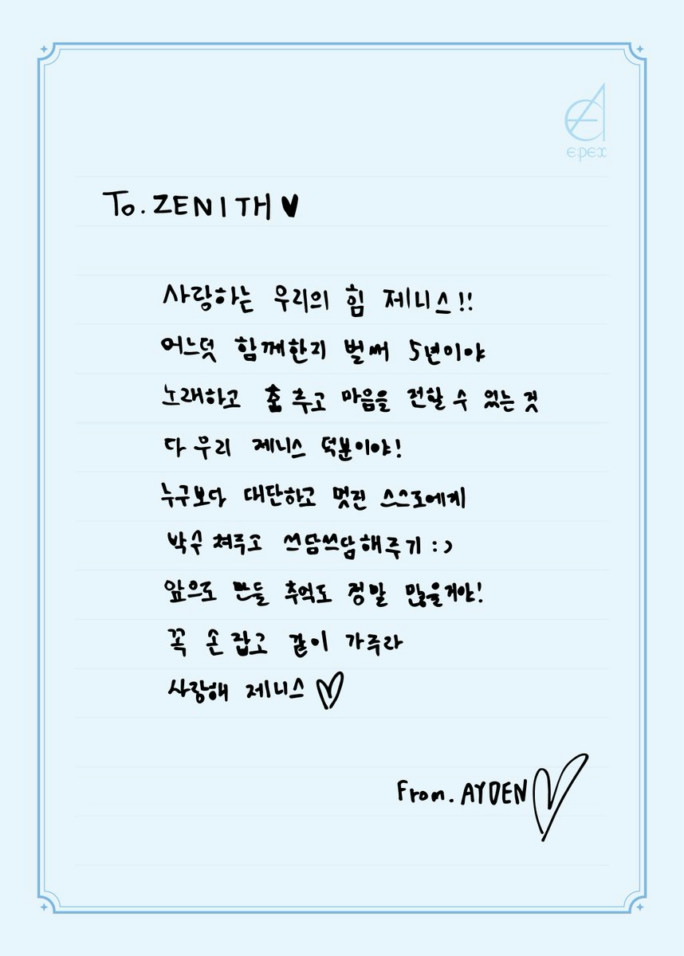 epex
To. ZENITH ♥
사랑하는 우리의 힘 제니스!!
어느덧 함께한지 벌써 5년이야
노래하고 춤 추고 마음을 전할 수 있는 것
다 우리 제니스 덕분이야!
누구보다 대단하고 멋진 스스로에게
박수 쳐주고 쓰담쓰담해주기 :)
앞으로 만들 추억도 정말 많을거야!
꼭 손 잡고 같이 가주라
사랑해 제니스 ♡
From. AYDEN ♡